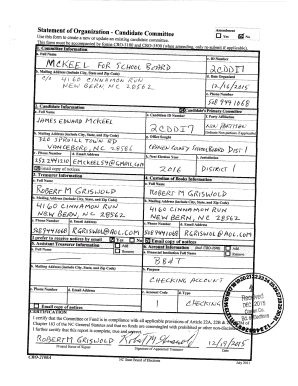 Statement of Organization - Candidate Committee
Amendment
Use this form to create a new or update an existing candidate committee.
Yes No
This form must be accompanied by forms CRO-3100 and CRO-3500 (when amending, only re-submit if applicable).
1. Committee Information
a. Full Name
d. ID Number
MCKEEL FOR SCHOOL BOARD
2CDDI7
b. Mailing Address (include City, State and Zip Code)
e. Date Organized
C/O 4160 CINNAMON RUN
12/16/2015
NEW BERN NC 28562
c. Phone Number
508 944 1068
2. Candidate Information
Candidate's Primary Committee
a. Full Name
e. Candidate ID Number
f. Party Affiliation
JAMES EDWARD MCKEEL
2CDDI7
NON PARTISAN
b. Mailing Address (include City, State, and Zip Code)
g. Office Sought
320 SPRUILL TOWN RD
CRAVEN COUNTY SCHOOL BOARD DIST 1
VANCEBORO, NC 28586
c. Phone Number
d. Email Address
h. Next Election Year
i. Jurisdiction
252 244 1210
EMCKEEL54@GMAIL.COM
2016
DISTRICT 1
3. Treasurer Information
4. Custodian of Books Information
a. Full Name
a. Full Name
ROBERT M GRISWOLD
ROBERT M GRISWOLD
b. Mailing Address (include City, State, and Zip Code)
b. Mailing Address (include City, State, and Zip Code)
4160 CINNAMON RUN
4160 CINNAMON RUN
NEW BERN, NC 28562
NEW BERN, NC 28562
c. Phone Number
d. Email Address
c. Phone Number
d. Email Address
508 944 1068
RGRISWOLD@AOL.COM
508 944 1068
RGRISWOLD@AOL.COM
I prefer to receive notices by email
Yes
No
Email copy of notices
5. Assistant Treasurer Information
Add
Remove
6. Account Information
Add
Remove
a. Full Name
a. Financial Institution Full Name
BB&T
b. Mailing Address (include City, State, and Zip Code)
b. Purpose
CHECKING ACCOUNT
c. Phone Number
d. Email Address
c. Account Code
d. Type
1
CHECKING
Email copy of notices
Received
DEC 2015
Craven Co.
CERTIFICATION
I certify that the Committee or Fund is in compliance with all applicable provisions of Article 22A,
Chapter 163 of the NC General Statutes and that no funds are commingled with prohibited or other
further certify that this report is complete, true and
ROBERT M GRISWOLD
12/19/2015
Printed Name of Signer
Signature of Appointed Treasurer
Date
CRO-2100A
NC State Board of Elections